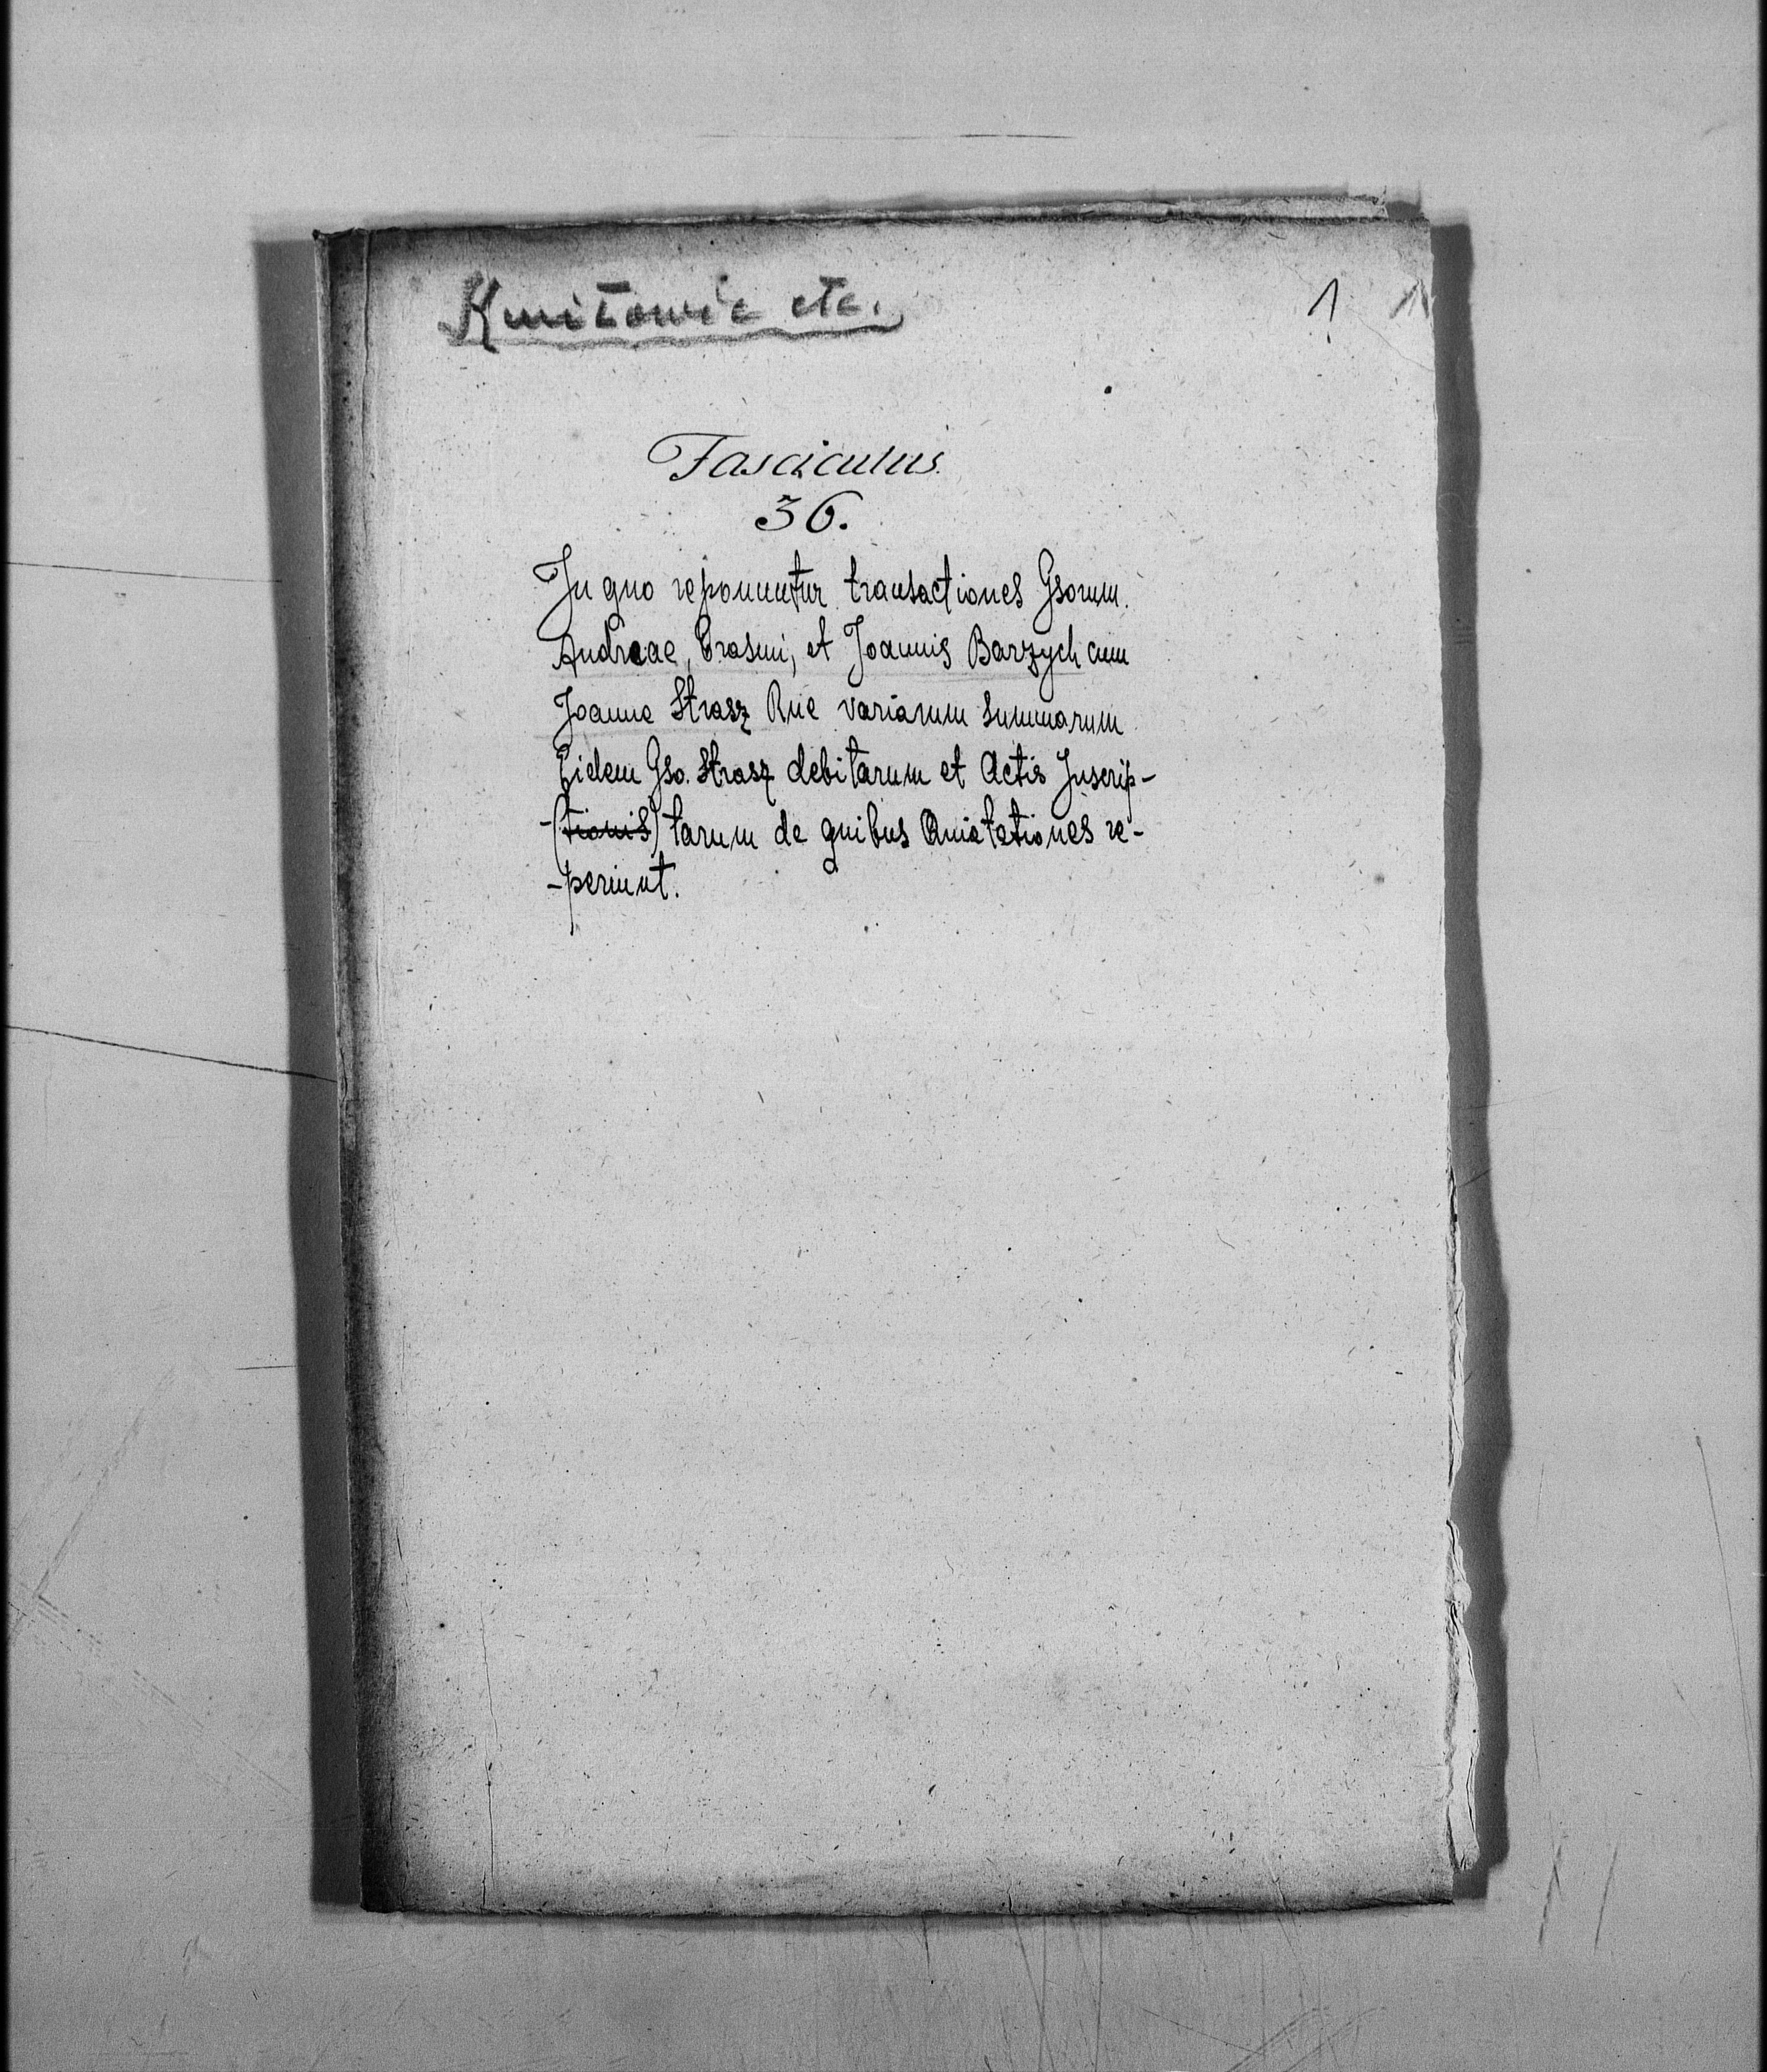 Kmitowie etc.
1 1
Fasciculus
36.
In quo reponuntur transactiones Gsorum.
Andreae, Erasmi, et Joannis Barzych cum
Joanne Strasz Rne variarum summarum
Eidem Gso. Strasz debitarum et Actis Inscrip-
-(tionis) tarum de quibus Quietationes re-
-periunt.